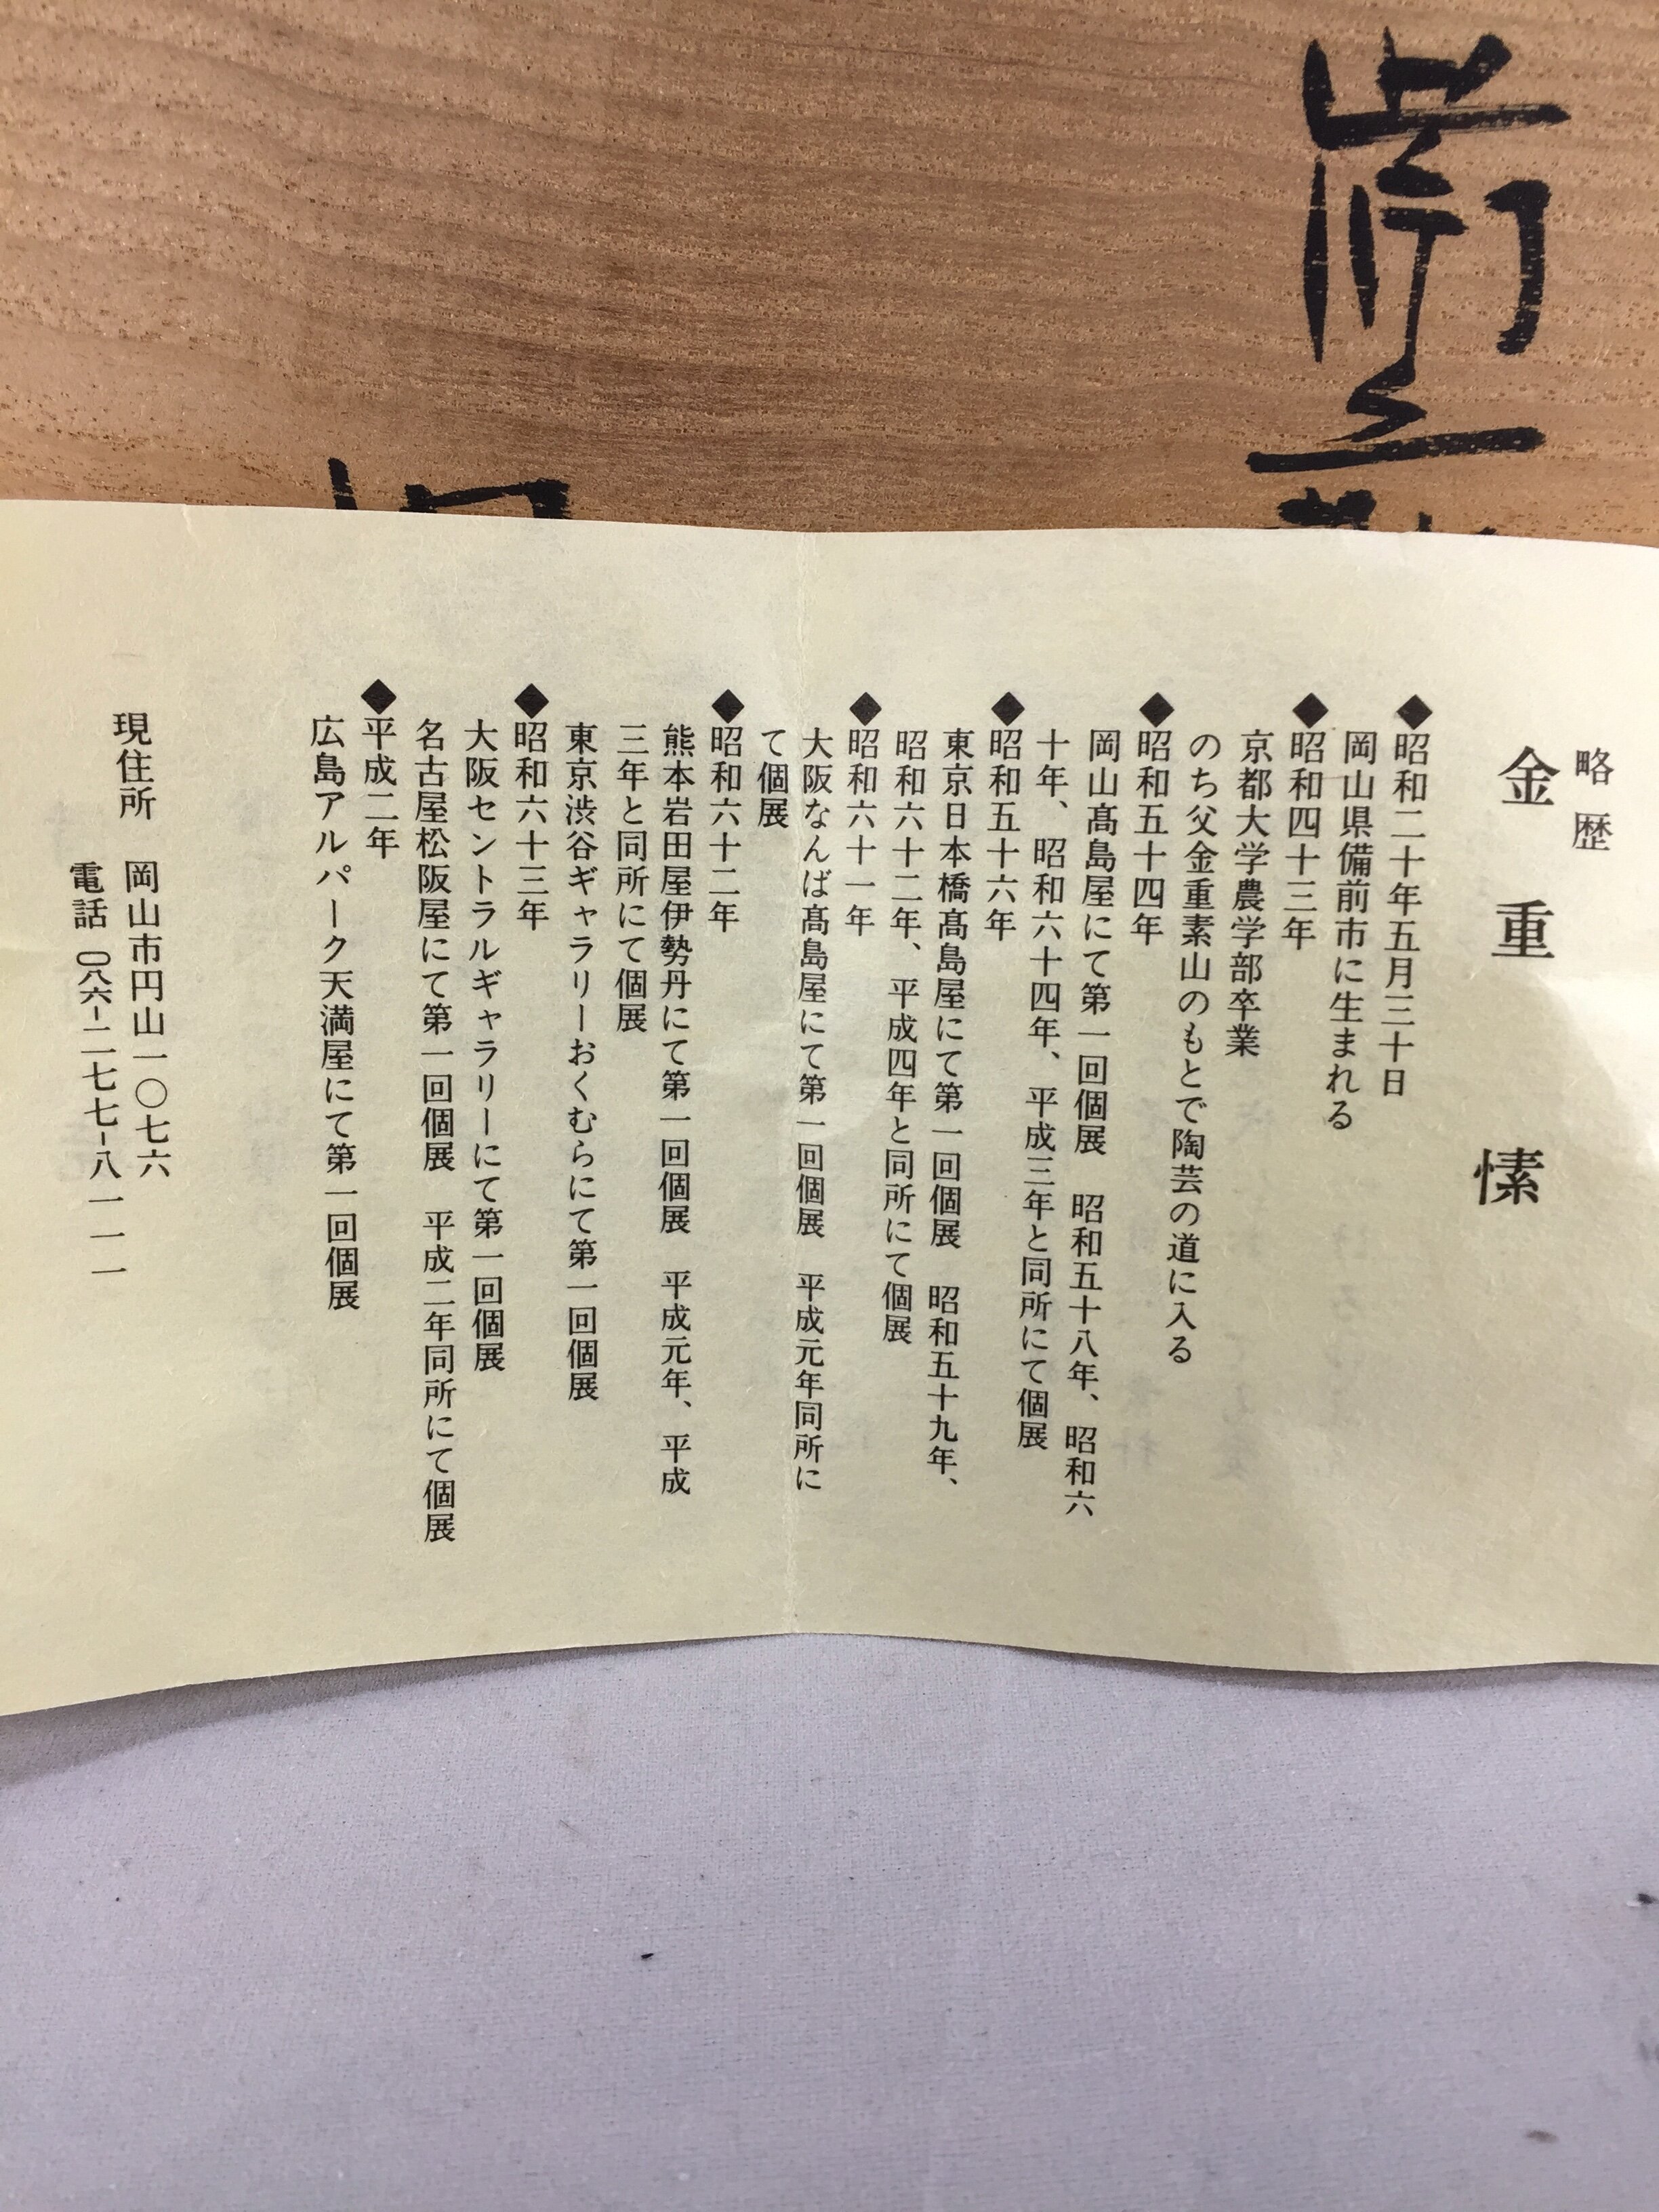 備前
略歴
金重愫
◆昭和二十年五月三十日
岡山県備前市に生まれる
◆昭和四十三年
京都大学農学部卒業
のち父金重素山のもとで陶芸の道に入る
◆昭和五十四年
岡山髙島屋にて第一回個展　昭和五十八年、昭和六
十年、昭和六十四年、平成三年と同所にて個展
◆昭和五十六年
東京日本橋髙島屋にて第一回個展　昭和五十九年、
昭和六十二年、平成四年と同所にて個展
◆昭和六十一年
大阪なんば髙島屋にて第一回個展　平成元年同所に
て個展
◆昭和六十二年
熊本岩田屋伊勢丹にて第一回個展　平成元年、平成
三年と同所にて個展
東京渋谷ギャラリーおくむらにて第一回個展
◆昭和六十三年
大阪セントラルギャラリーにて第一回個展
名古屋松阪屋にて第一回個展　平成二年同所にて個展
◆平成二年
広島アルパーク天満屋にて第一回個展
現住所　岡山市円山一〇七六
電話　〇八六-二七七-八一一一